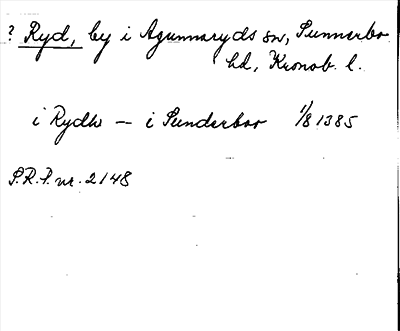 ? Ryd, by i Agunnaryds sn, Sunnerbo
hd, Kronob. l.
i Rydh — i Sunderbor 1/8 1385
S.R.P. nr. 2148